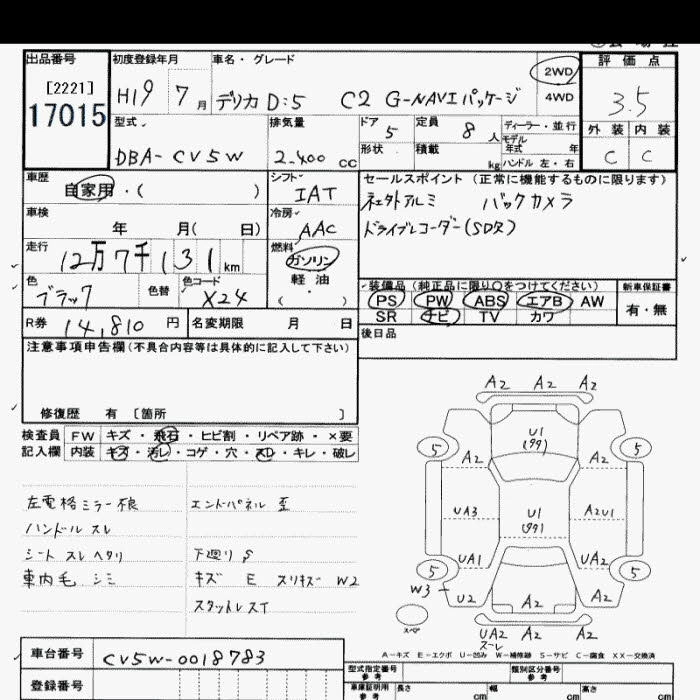 出品番号
[2221]
17015
初度登録年月
H19 7月
車名・グレード
デリカD:5 C2 G-NAVIパッケージ
2WD
4WD
評価点
3.5
外装 内装
C C
型式
DBA-CV5W
排気量
2.400 cc
ドア
5
形状
定員
8人
積載
kg
ディーラー・並行
モデル年式 年
ハンドル 左・右
車歴
自家用・( )
シフト
IAT
車検
年 月( 日)
冷房
AAC
走行
12万7千131km
燃料
ガソリン
軽油
( ・ )
色
ブラック
色替
色コード
X24
R券 14,810 円
名変期限 月 日
セールスポイント (正常に機能するものに限ります)
社外アルミ バックカメラ
ドライブレコーダー(SDタ)
装備品(純正品に限り○をつけてください)
PS PW ABS エアB AW
SR ナビ TV カワ
新車保証書
有・無
後日品
注意事項申告欄(不具合内容等は具体的に記入して下さい)
修復歴 有 [箇所 ]
検査員記入欄
FW キズ・飛石・ヒビ割・リペア跡・×要
内装 キズ・汚レ・コゲ・穴・スレ・キレ・破レ
左電格ミラー不良
ハンドル スレ
シート スレ ヘタリ
車内毛 シミ
エンドパネル 歪
下廻り S
キズ E スリキズ W2
スタットレスT
A2 A2 A2
U1
5 A2 A2 5
UA3 U1 A2U1
UA1 UA2
5 5
W3
U2 A2 A2
スペア
UA2 A2 A2
スーレ
A-キズ E-エクボ U-凹み W-補修跡 S-サビ C-腐食 XX-交換済
車台番号
CV5W-0018783
登録番号
型式指定番号
参考
類別区分番号
参考
車庫証明用
参考
長さ cm
幅 cm
高さ cm